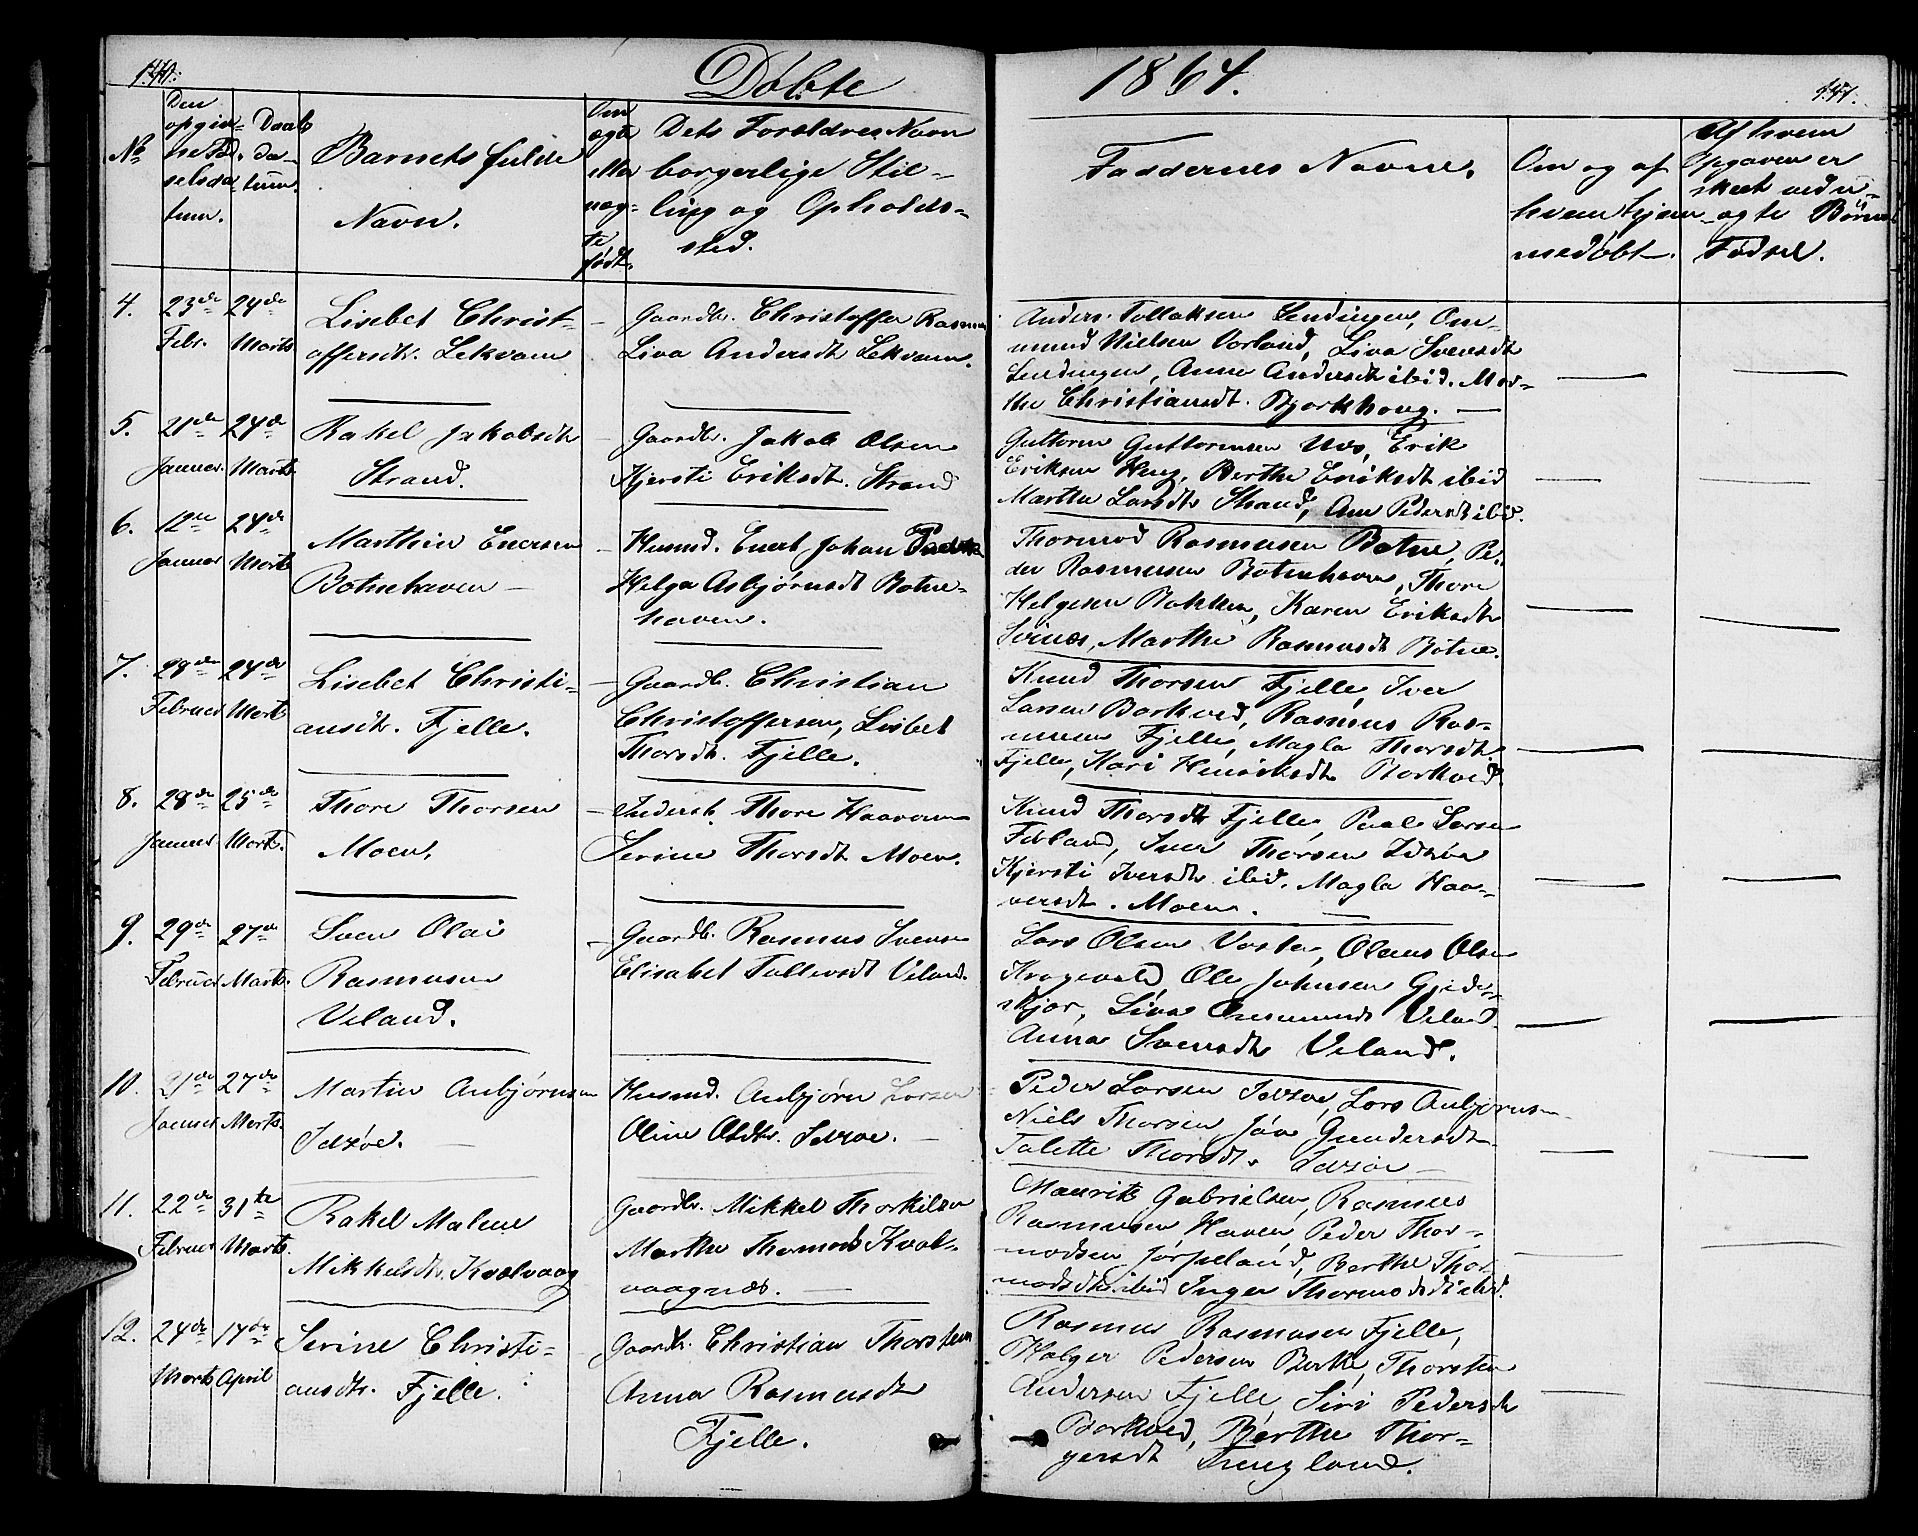 140.
Døbte
1864.
141.
No
Den
opgiv-
ne Fød-
selsda-
tum.
Daabs
da-
tum.
Barnets fulde
Navn.
Om
ægte
eller
uæg-
te
født.
Dets Forældres Navn
borgerlige Stil-
ling og Opholds-
sted.
Faddernes Navne.
Om og af
hvem hjem
medøbt.
Af hvem
Opgaven er
skeet ved u-
ægte Børns
Fødsel.
4.
23de
Febr.
24de
Marts
Lisebet Christ-
offersdtr. Lekvam
Gaardbr. Christoffer Rasmus
Liva Andersdt Lekvam.
Anders Tollaksen Lindingen, Om-
mund Nielsen Vorland, Liva Svensdt
Lindingen, Anne Andersdt ibid. Mar-
the Christiansdt. Bjorkhoug.
5.
21de
Januar.
24de
Marts
Rakel Jakobsdtr
Strand.
Gaardbr. Jakob Olsen
Kjersti Eriksdt. Strand
Guttorm Guttormsen Vos, Erik
Eriksen Houg, Berthe Eriksdt ibid
Marthe Larsdt Strand, Ane Pedersdt ibid.
6.
12te
Januar
24de
Marts
Marthin Enersen
Botnehaven
Husmd. Enert Johan
Helga Asbjørnsdt Botne-
haven.
Thormod Rasmusen Botne, Pe-
der Rasmusen Botnehaven, Thore
Helgesen Bakken, Karen Eriksdtr
Svines, Marthe Rasmusdt Botne.
7.
24de
Februar
24de
Marts
Lisebet Christi-
ansdtr. Fjelle.
Gaardbr. Christian
Christoffersen, Lisbet
Thorsdt. Fjelle.
Knud Thorsen Fjelle, Iver
Larsen Barkved, Rasmus Ras-
musen Fjelle, Magla Thorsdt
Fjelle, Kari Henriksdt Barkved
8.
28de
Januar
25de
Marts.
Thore Thorsen
Moen.
Inderst. Thore Haaversen
Serine Thorsdt Moen.
Knud Thorsdt Fjelle, Paul Larsen
Førland, Iver Thorsen Idsøe
Kjersti Iversdtr ibid. Magla Haa-
versdt. Moen.
9.
29de
Februar
27de
Marts.
Sven Olai
Rasmusen
Veland.
Gaardbr. Rasmus Svensen
Elisabet Tollevsdt Veland.
Lars Olsen Vostø, Olaus Olsen
Kragevold, Ole Johnsen Gjeder-
skjør, Liva Omundsdt Veland
Anna Svensdtr Veland.
10.
21de
Januar
27de
Marts.
Martin Anbjørnsen
Idsøe.
Husmd. Anbjørn Larsen
Oline Olsdtr. Idsøe.
Peder Larsen Idsøe, Lars Anbjørnsen
Niels Thorsen Jøn Gundersdt.
Talette Thorsdt. Idsøe
11.
22de
Februar
31te
Marts.
Rakel Malene
Mikkelsdtr. Kvalvaag
Gaardbr. Mikkel Thorkilsen
Marthe Thormodsd Kval-
vaagnæs.
Maurits Gabrielsen, Rasmus
Rasmusen Haven Peder Thor-
modsen Jørpeland, Berthe Thor-
modsdtr. ibid Inger Thormodsdt ibid.
12.
24de
Marts
17de
April
Serine Christi-
ansdtr. Fjelle.
Gaardbr. Christian Thorsten
Anna Rasmusdtr
Fjelle.
Rasmus Rasmusen Fjelle,
Holger Pedersen Berke, Thorsten
Andersen Fjelle, Siri Pedersdt
Barkved, Berthe Thor-
gersdt Tungland.